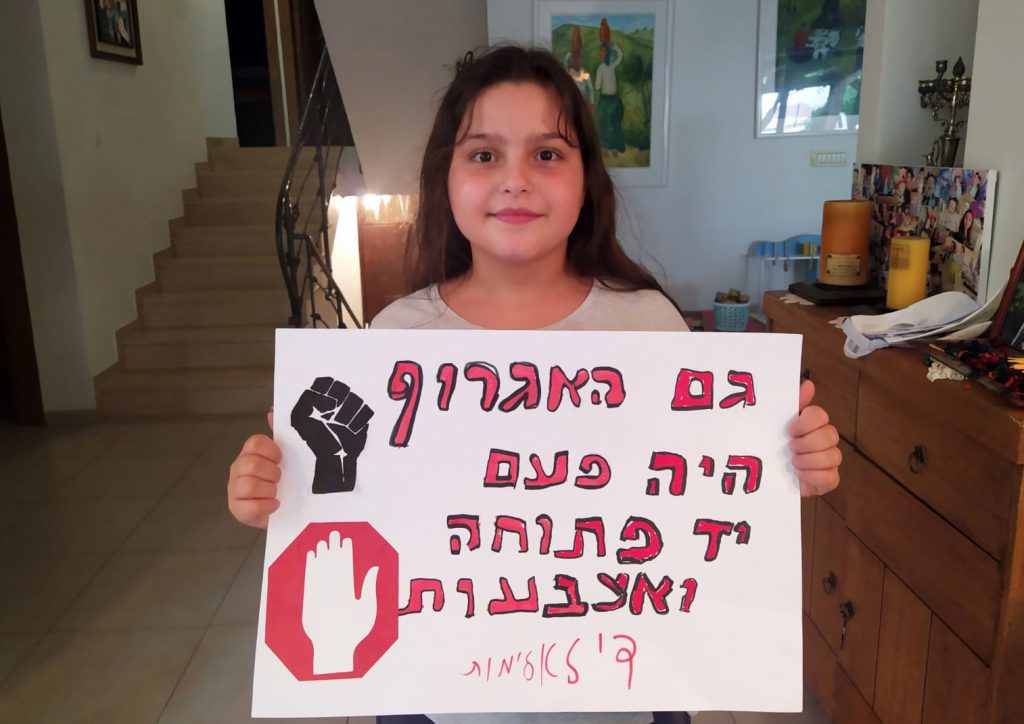 גם האגרוף
היה פעם
יד פתוחה
ואצבעות
די לאלימות